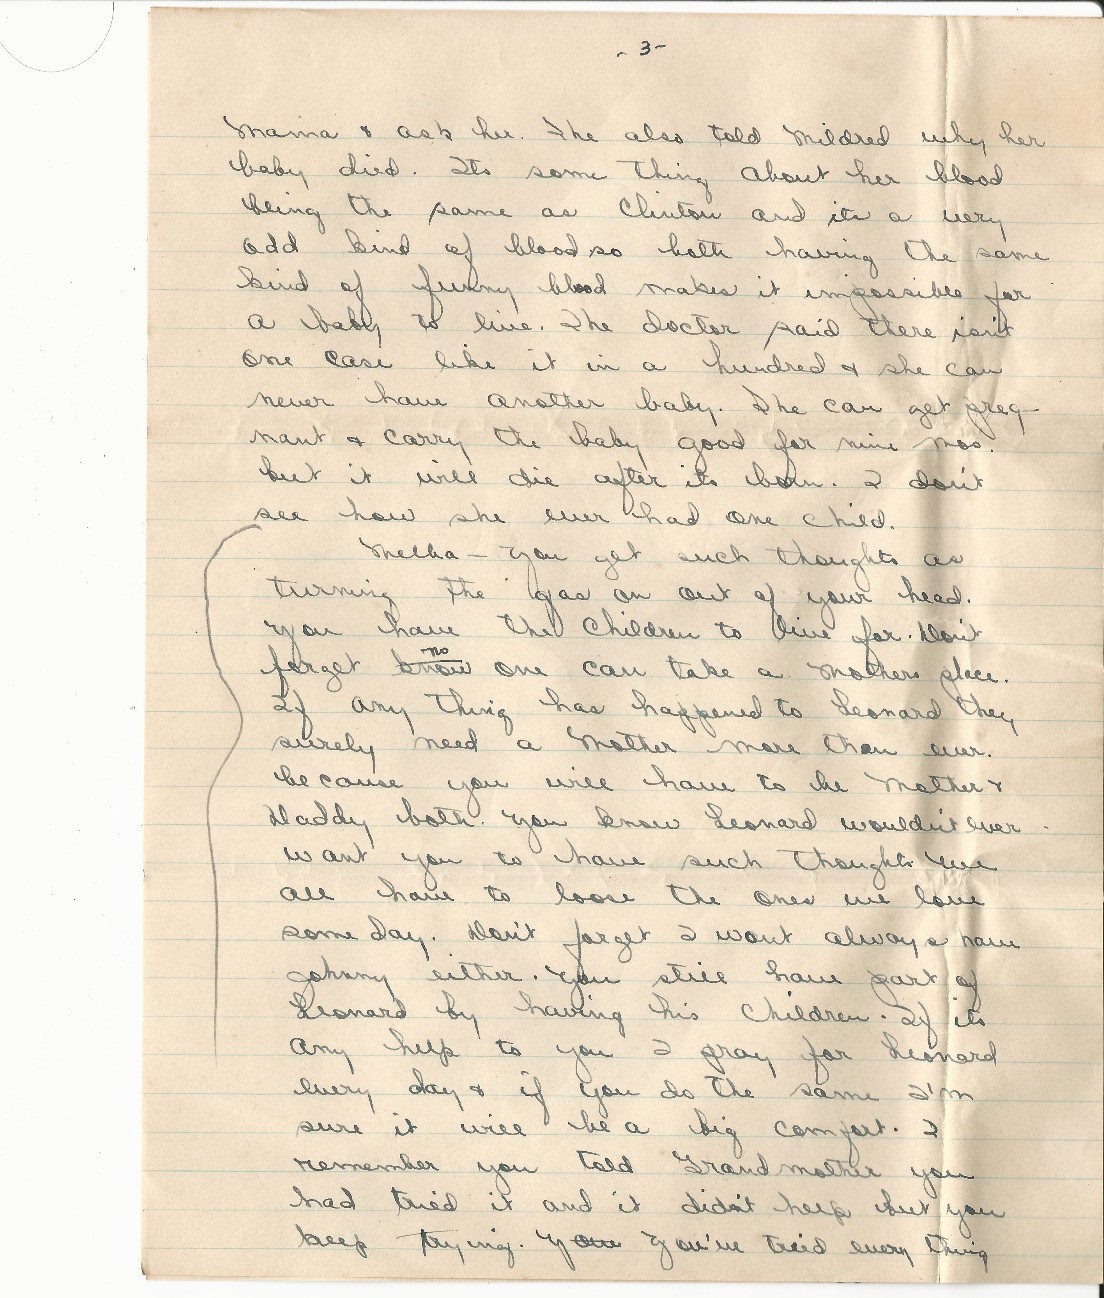 - 3 -
Mama & ask her. She also told Mildred why her
baby died. Its some thing about her blood
being the same as Clinton and its a very
odd kind of blood so both having the same
kind of funny blood makes it impossible for
a baby to live. The doctor said there isn't
one case like it in a hundred & she can
never have another baby. She can get preg-
nant & carry the baby good for nine mos.
but it will die after its born. I don't
see how she ever had one child.
Melba - You get such thoughts as
turning the gas on out of your head.
You have the children to live for. Don't
forget know no one can take a Mothers place.
If any thing has happened to Leonard they
surely need a Mother more than ever.
because you will have to be Mother &
Daddy both. You know Leonard wouldn't ever
want you to have such thoughts. We
all have to loose the ones we love
some day. Don't forget I wont always have
Johnny either. You still have part of
Leonard by having his children. If its
any help to you I pray for Leonard
every day & if you do the same I'm
sure it will be a big comfort. I
remember you told Grandmother you
had tried it and it didn't help but you
keep trying. You You've tried every thing